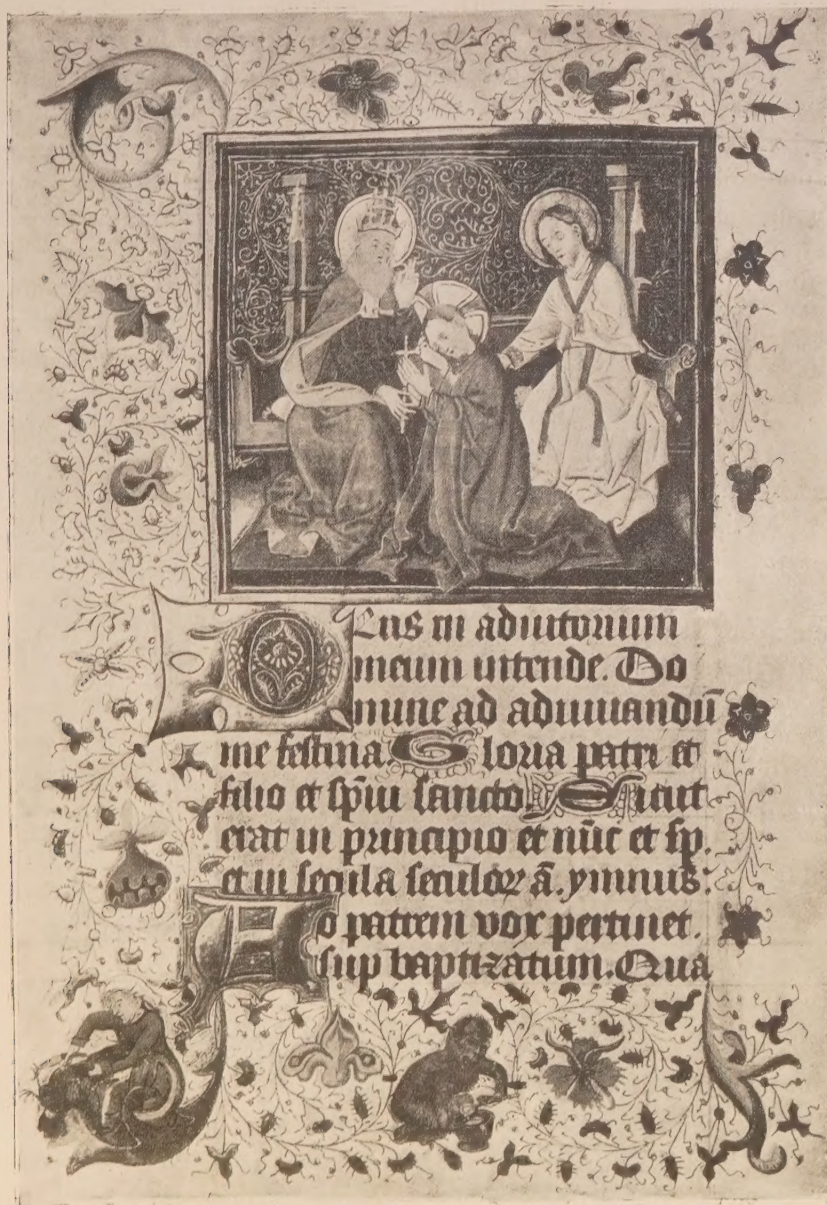 DEus in adiutorium
meum intende. Do
mine ad adiuuandū
me festina. Gloria patri et
filio et sp̄iu sancto. Sicut
erat in principio et nūc et sp̄.
et in secula seculoꝝ ā. ymnus.
Ao patrem vox pertinet.
sup baptizatum. Qua